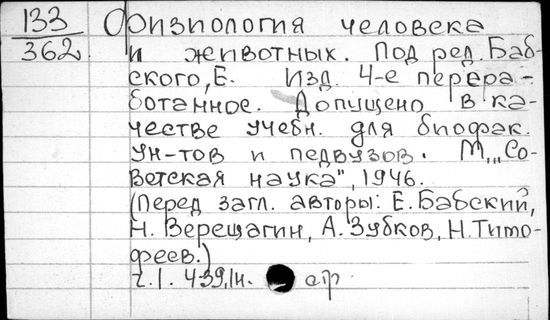 133
362
Физиология человека
и животных. Под ред. Баб-
ского, Е. Изд. 4-е перера-
ботанное. Допущено в ка-
честве учебн. для биофак.
ун-тов и педвузов. М., „Со-
ветская наука", 1946.
(Перед загл. авторы: Е. Бабский,
Н. Верещагин, А. Зубков, Н. Тимо-
феев.)
ч. I. 439, IН. стр.